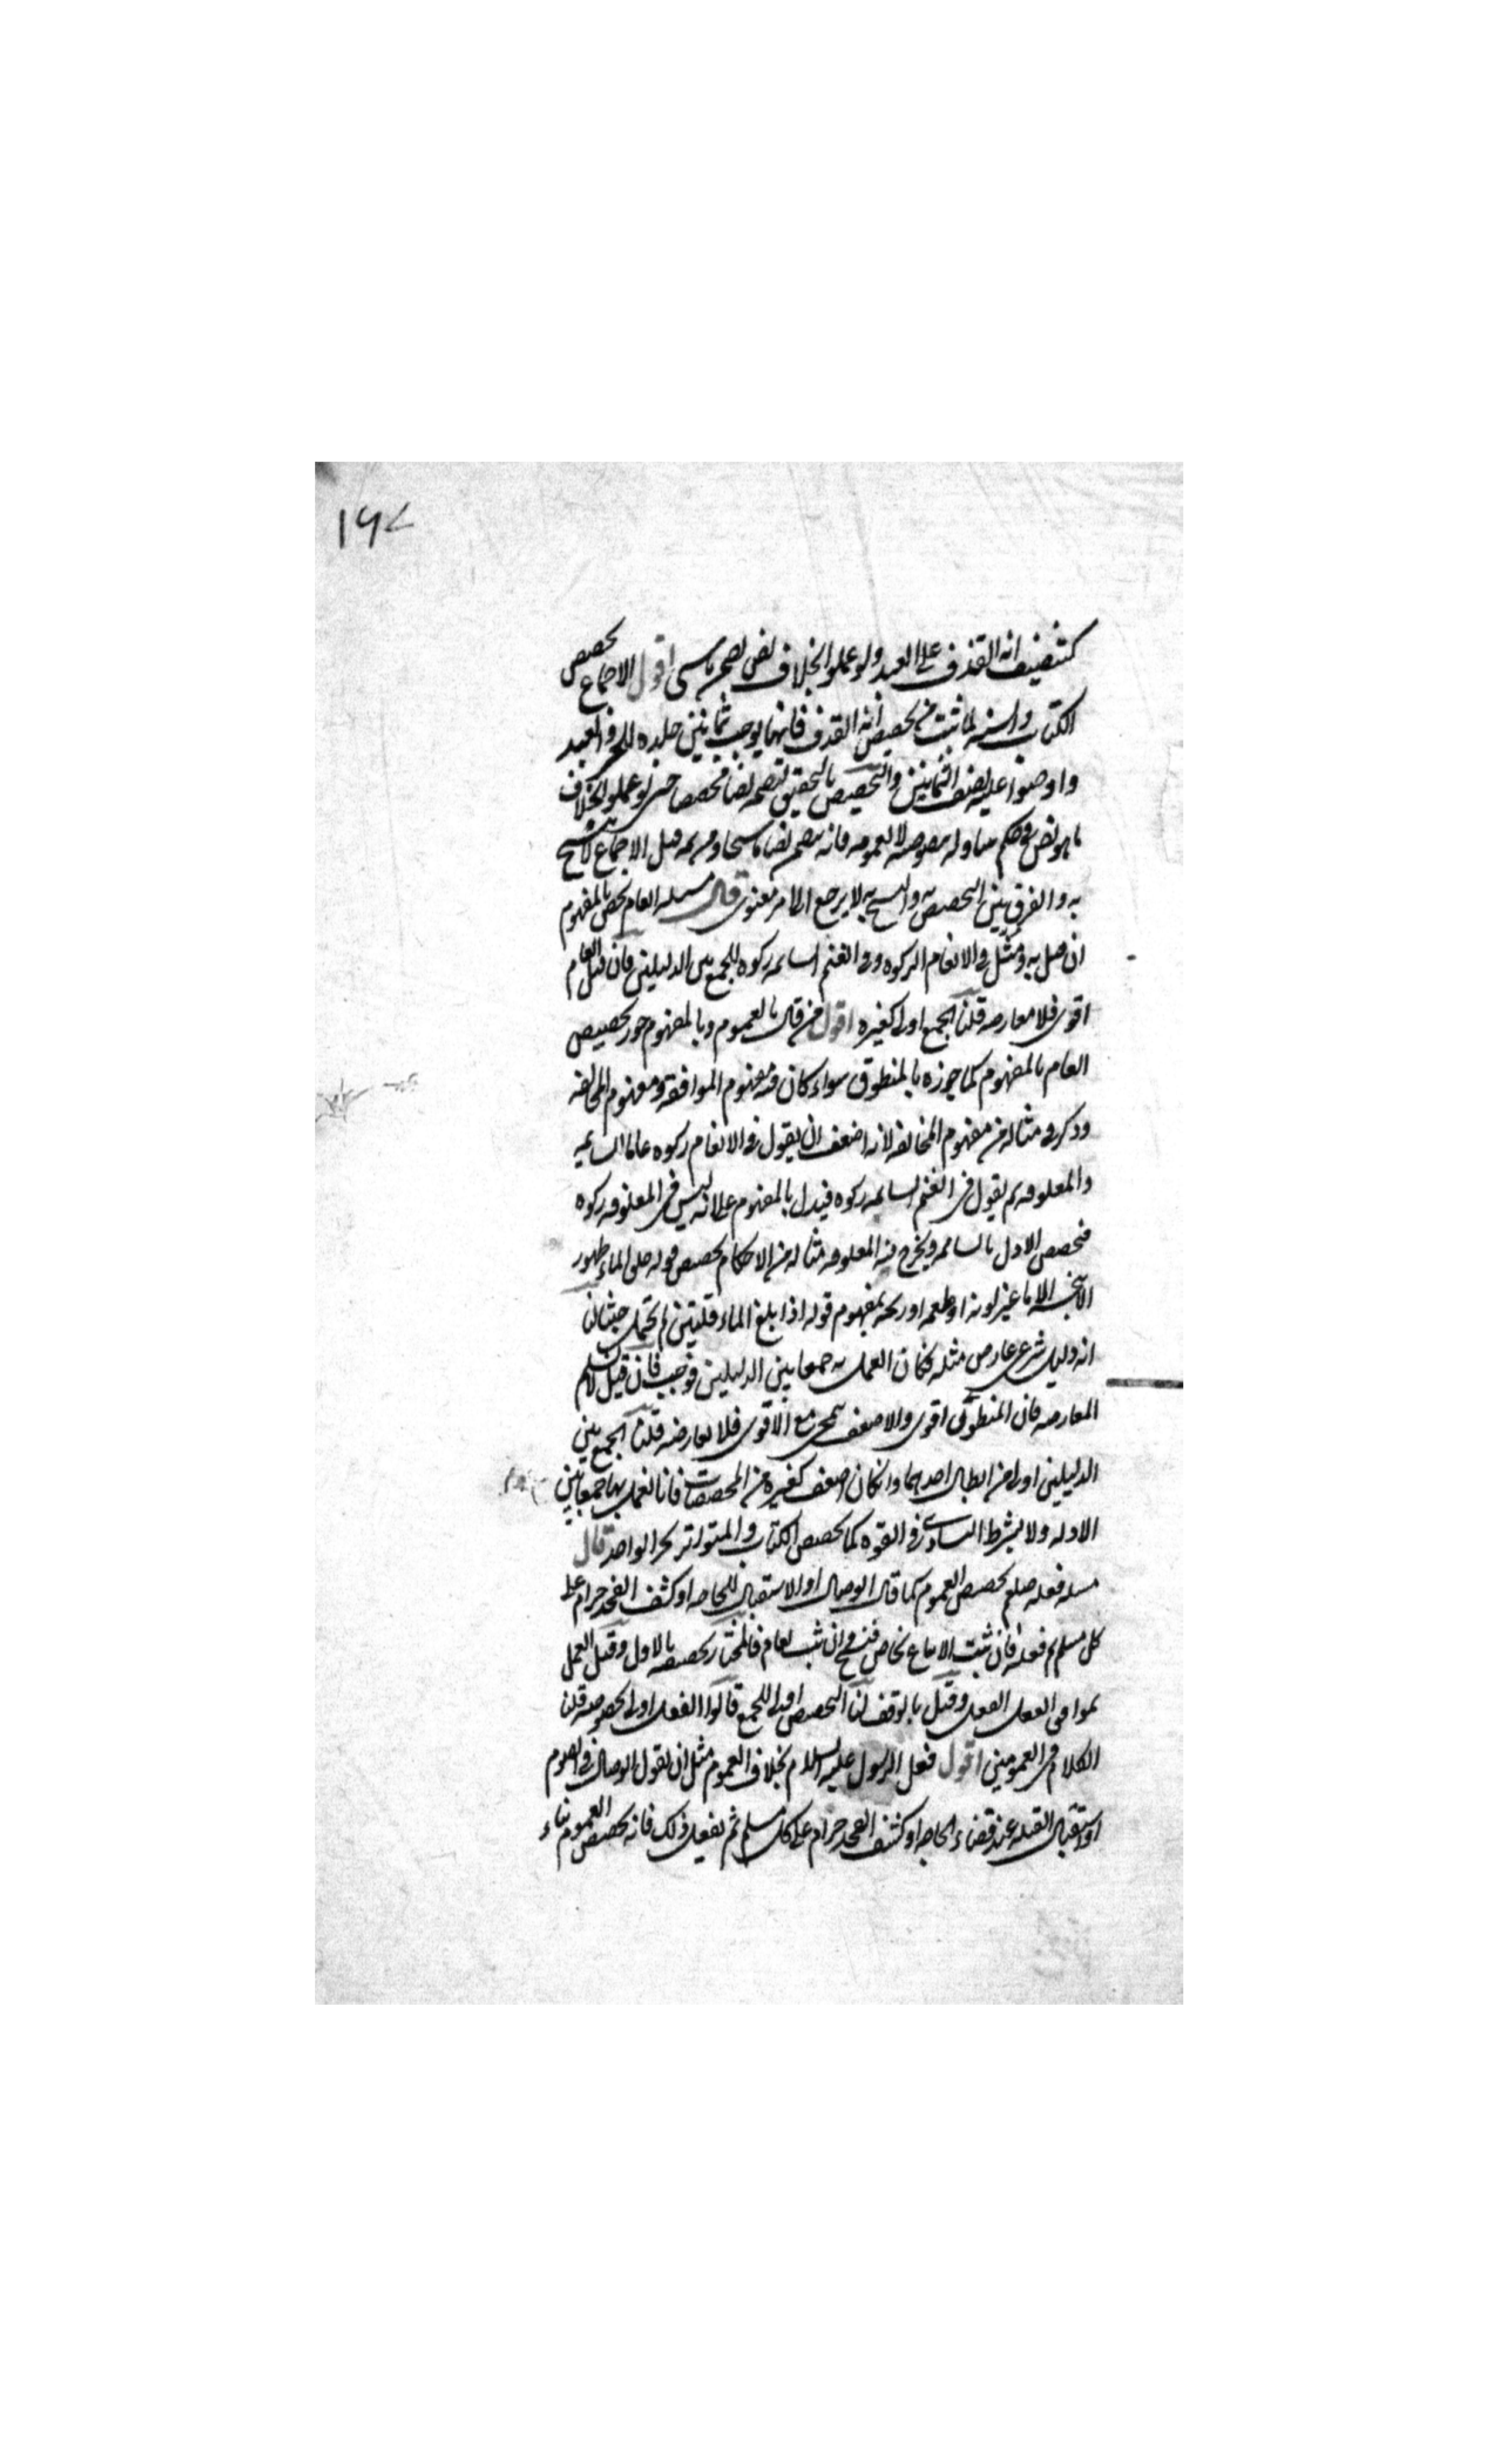 ١٦٧
كتنصيف آية القذف على العبد ولو عملوا بخلاف نص تضمن ناسخا اقول الاجماع تخصيص
الكتاب والسنة لما ثبت من تخصيص آية القذف فانها يوجب ثمانين جلدة للحر والعبد
واوجبوا عليه نصف الثمانين والتخصيص بالتحقيق لتضمنه نصا مخصصا حتى لو عملوا بخلاف
ما هو نص في حكم بخصوصه لا لعمومه فانه يتضمن نصا ناسخا ومن ثمه قيل الاجماع لا ينسخ
به والفرق بين التخصيص به والنسخ به لا يرجع الى امر معنوى قال مسئلة العام يخص بالمفهوم
ان قيل به ومثل في الانعام الزكوة وفي الغنم السائمة زكوة للجمع بين الدليلين فان قيل العام
اقوى فلا معارضة قلنا الجمع اولى كغيره اقول من قال بالعموم وبالمفهوم جوز تخصيص
العام بالمفهوم كما جوزه بالمنطوق سواء كان فيه مفهوم الموافقة ومفهوم المخالفة
وذكر في مثاله من مفهوم المخالفة لانه اضعف ان يقول في الانعام زكوة عاما السائمة
والمعلوفة ثم يقول في الغنم السائمة زكوة فيدل بالمفهوم على انه ليس في المعلوفة زكوة
فخصص الاول بالسائمة ويخرج منه المعلوفة مثاله من الاحكام تخصيص قوله خلق الماء طهور
لا ينجسه الا ما غير لونه او طعمه او ريحه بمفهوم قوله اذا بلغ الماء قلتين لم يحتمل خبثا لنا
انه دليل شرعى عارض مثله فكان العمل به جمعا بين الدليلين فوجب فان قيل لا نسلم
المعارضة فان المنطوق اقوى والاضعف ينمحى مع الاقوى فلا يعارضه قلنا الجمع بين
الدليلين اولى من ابطال احدهما وان كان اضعف كغيره من المخصصات فانا نعمل بها جمعا بين
الادلة ولا يشترط التساوى في القوة كما يخصص الكتاب والمتواتر بخبر الواحد قال
مسئلة فعله صلعم يخصص العموم كما قال الوصال او الاستقبال للحاجة او كشف الفخذ حرام على
كل مسلم ثم فعله فان ثبت الاتباع بخاص فنسخ وان ثبت بعام فالمختار تخصيصه بالاول وقيل العمل
بموافق الفعل وقيل بالوقف لنا التخصيص اولى للجمع قالوا الفعل اولى لخصوصه قلنا
الكلام في العمومين اقول فعل الرسول عليه السلام بخلاف العموم مثل ان يقول الوصال في الصوم
او استقبال القبلة عند قضاء الحاجة او كشف الفخذ حرام على كل مسلم ثم يفعل ذلك فانه يخصص العموم بناء